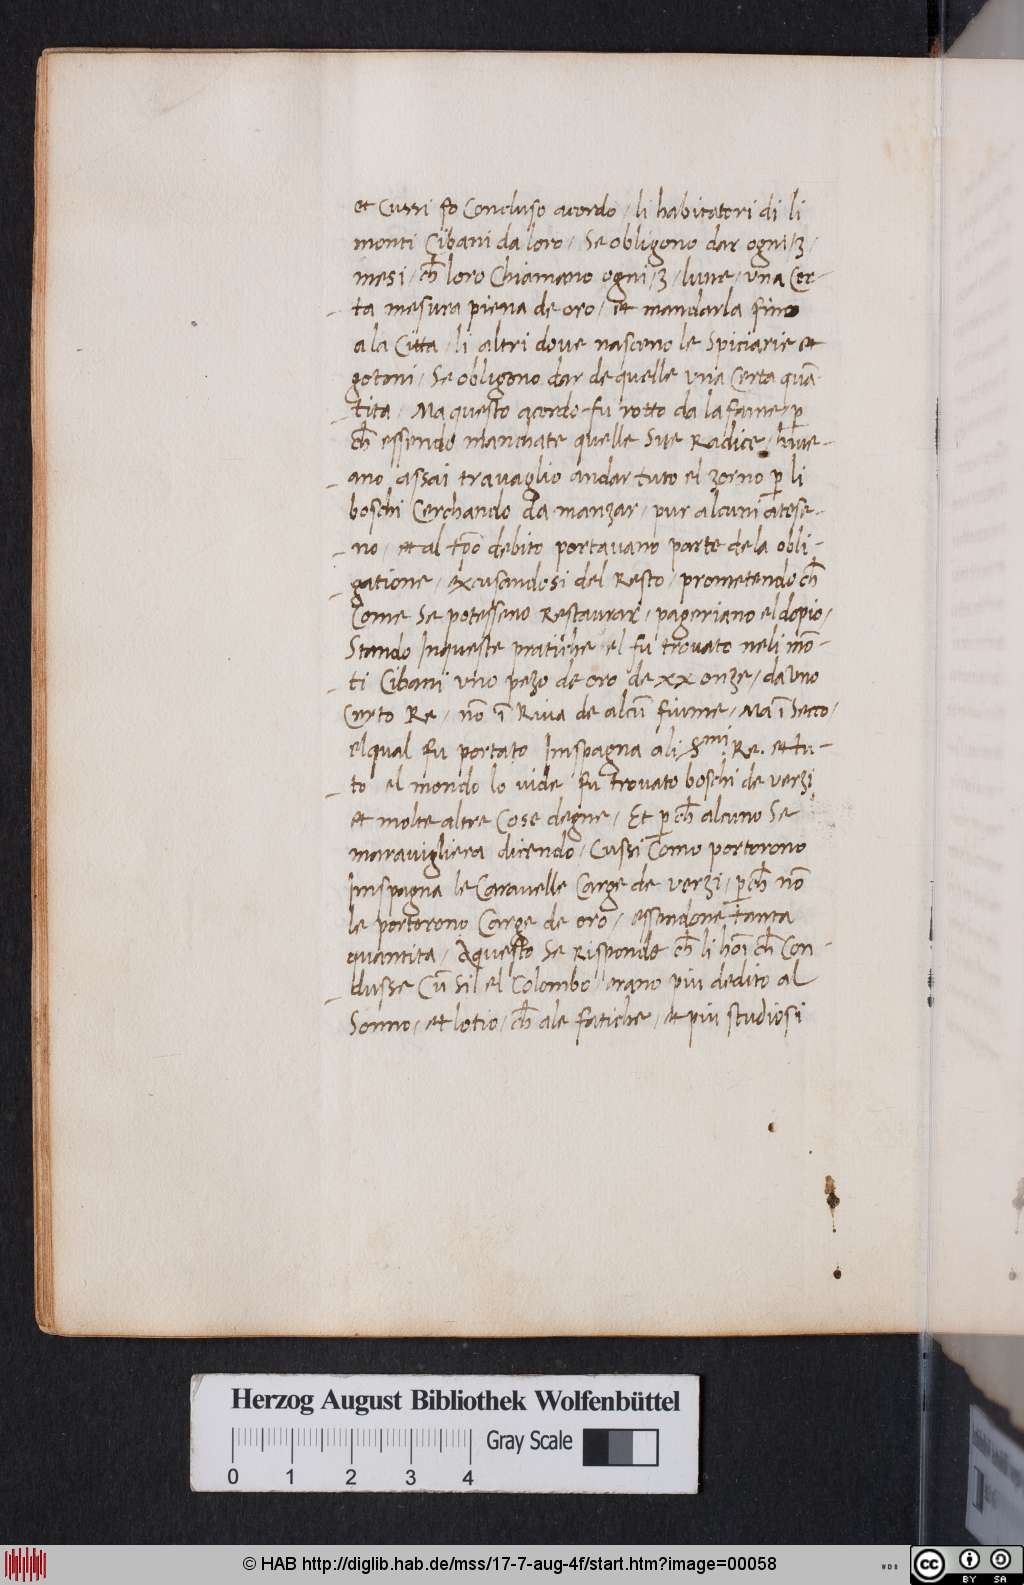 et Cussi fo Concluso acordo / li habitatori di li
monti Cibani da loro / Se obligono dar ogni /3/
mesi / ch̄ loro Chiamano ogni /3/ lune / una Cer-
ta mesura piena de oro / et mandarla fino
a la Citta / li altri dove nasceno le Spiciarie et
gotoni / Se obligono dar de quelle una Certa quā-
tita / Ma questo acordo fu rotto da la fame / p̱
ch̄ essendo manchate quelle Sue Radice / have-
ano assai travaglio andar tuto el zorno p̱ li
boschi Cerchando da manzar / pur alcuni atese-
no / et al tp̄o debito portavano parte de la obli-
gatione / excusandosi del Resto / prometendo ch̄
Come Se potesseno Restaurar / pageriano el dopio /
Stando Inqueste pratiche / el fu trovato neli mō-
ti Cibani uno pezo de oro de xx onze / da uno
Certo Re / nō ī Riva de alcū fiume / Ma ī Secco /
elqual fu portato Inspagna ali Smi Re. et tu-
to el mondo lo vide fu trovato boschi de verzi
et molte altre Cose degne / Et p̱ ch̄ alcuno Se
maravigliera dicendo / Cussi Como portorono
Inspagna le Caravelle Carge de verzi / p̱ch̄ nō
le portorono Carge de oro / essendone tanta
quantita / Aquesto Se Risponde ch̄ li hoī ch̄ Con-
dusse Cū Si el Colombo erano piu dedito al
Sonno / et lotio / ch̄ ale fatiche / et piu studiosi
Herzog August Bibliothek Wolfenbüttel
Gray Scale
0 1 2 3 4
© HAB http://diglib.hab.de/mss/17-7-aug-4f/start.htm?image=00058
WDB
cc BY SA